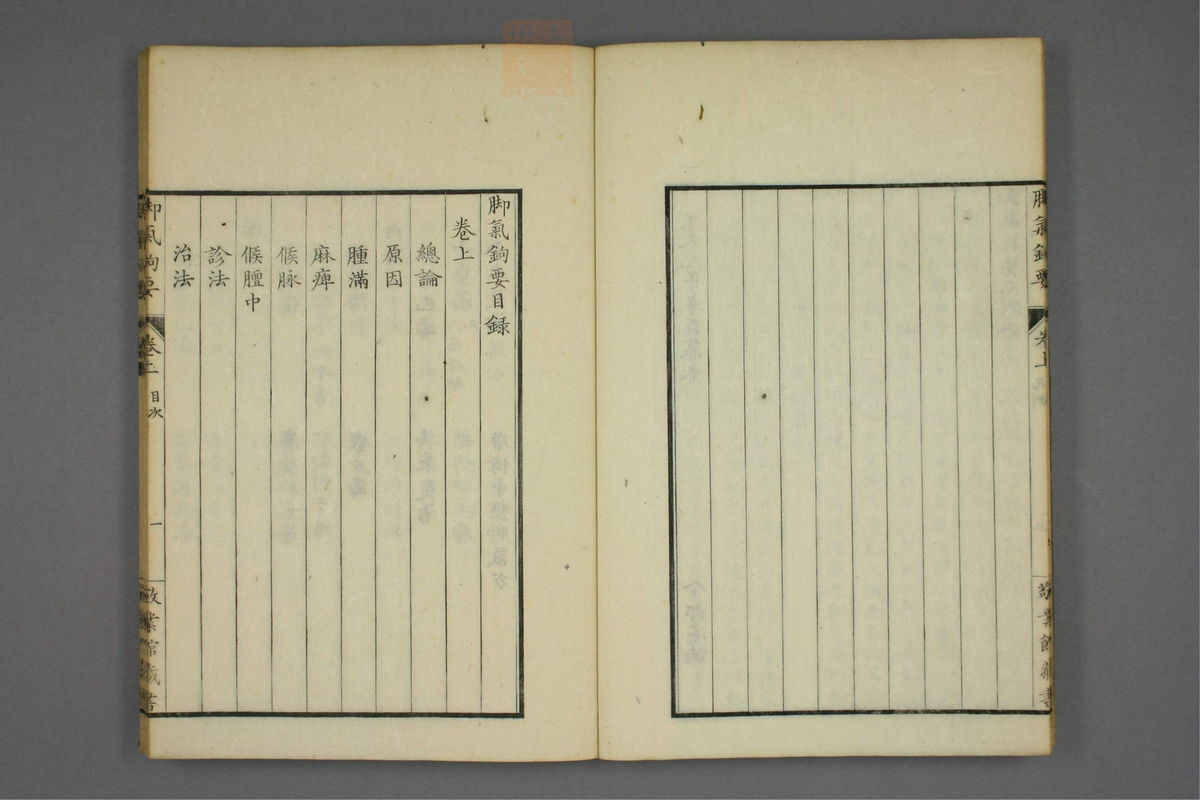 脚氣鉤要
卷上
敬業館藏書
脚氣鉤要目録
卷上
總論
原因
腫滿
麻痺
候脉
候膻中
診法
治法
脚氣鉤要
卷上
目次
一
敬業館藏書